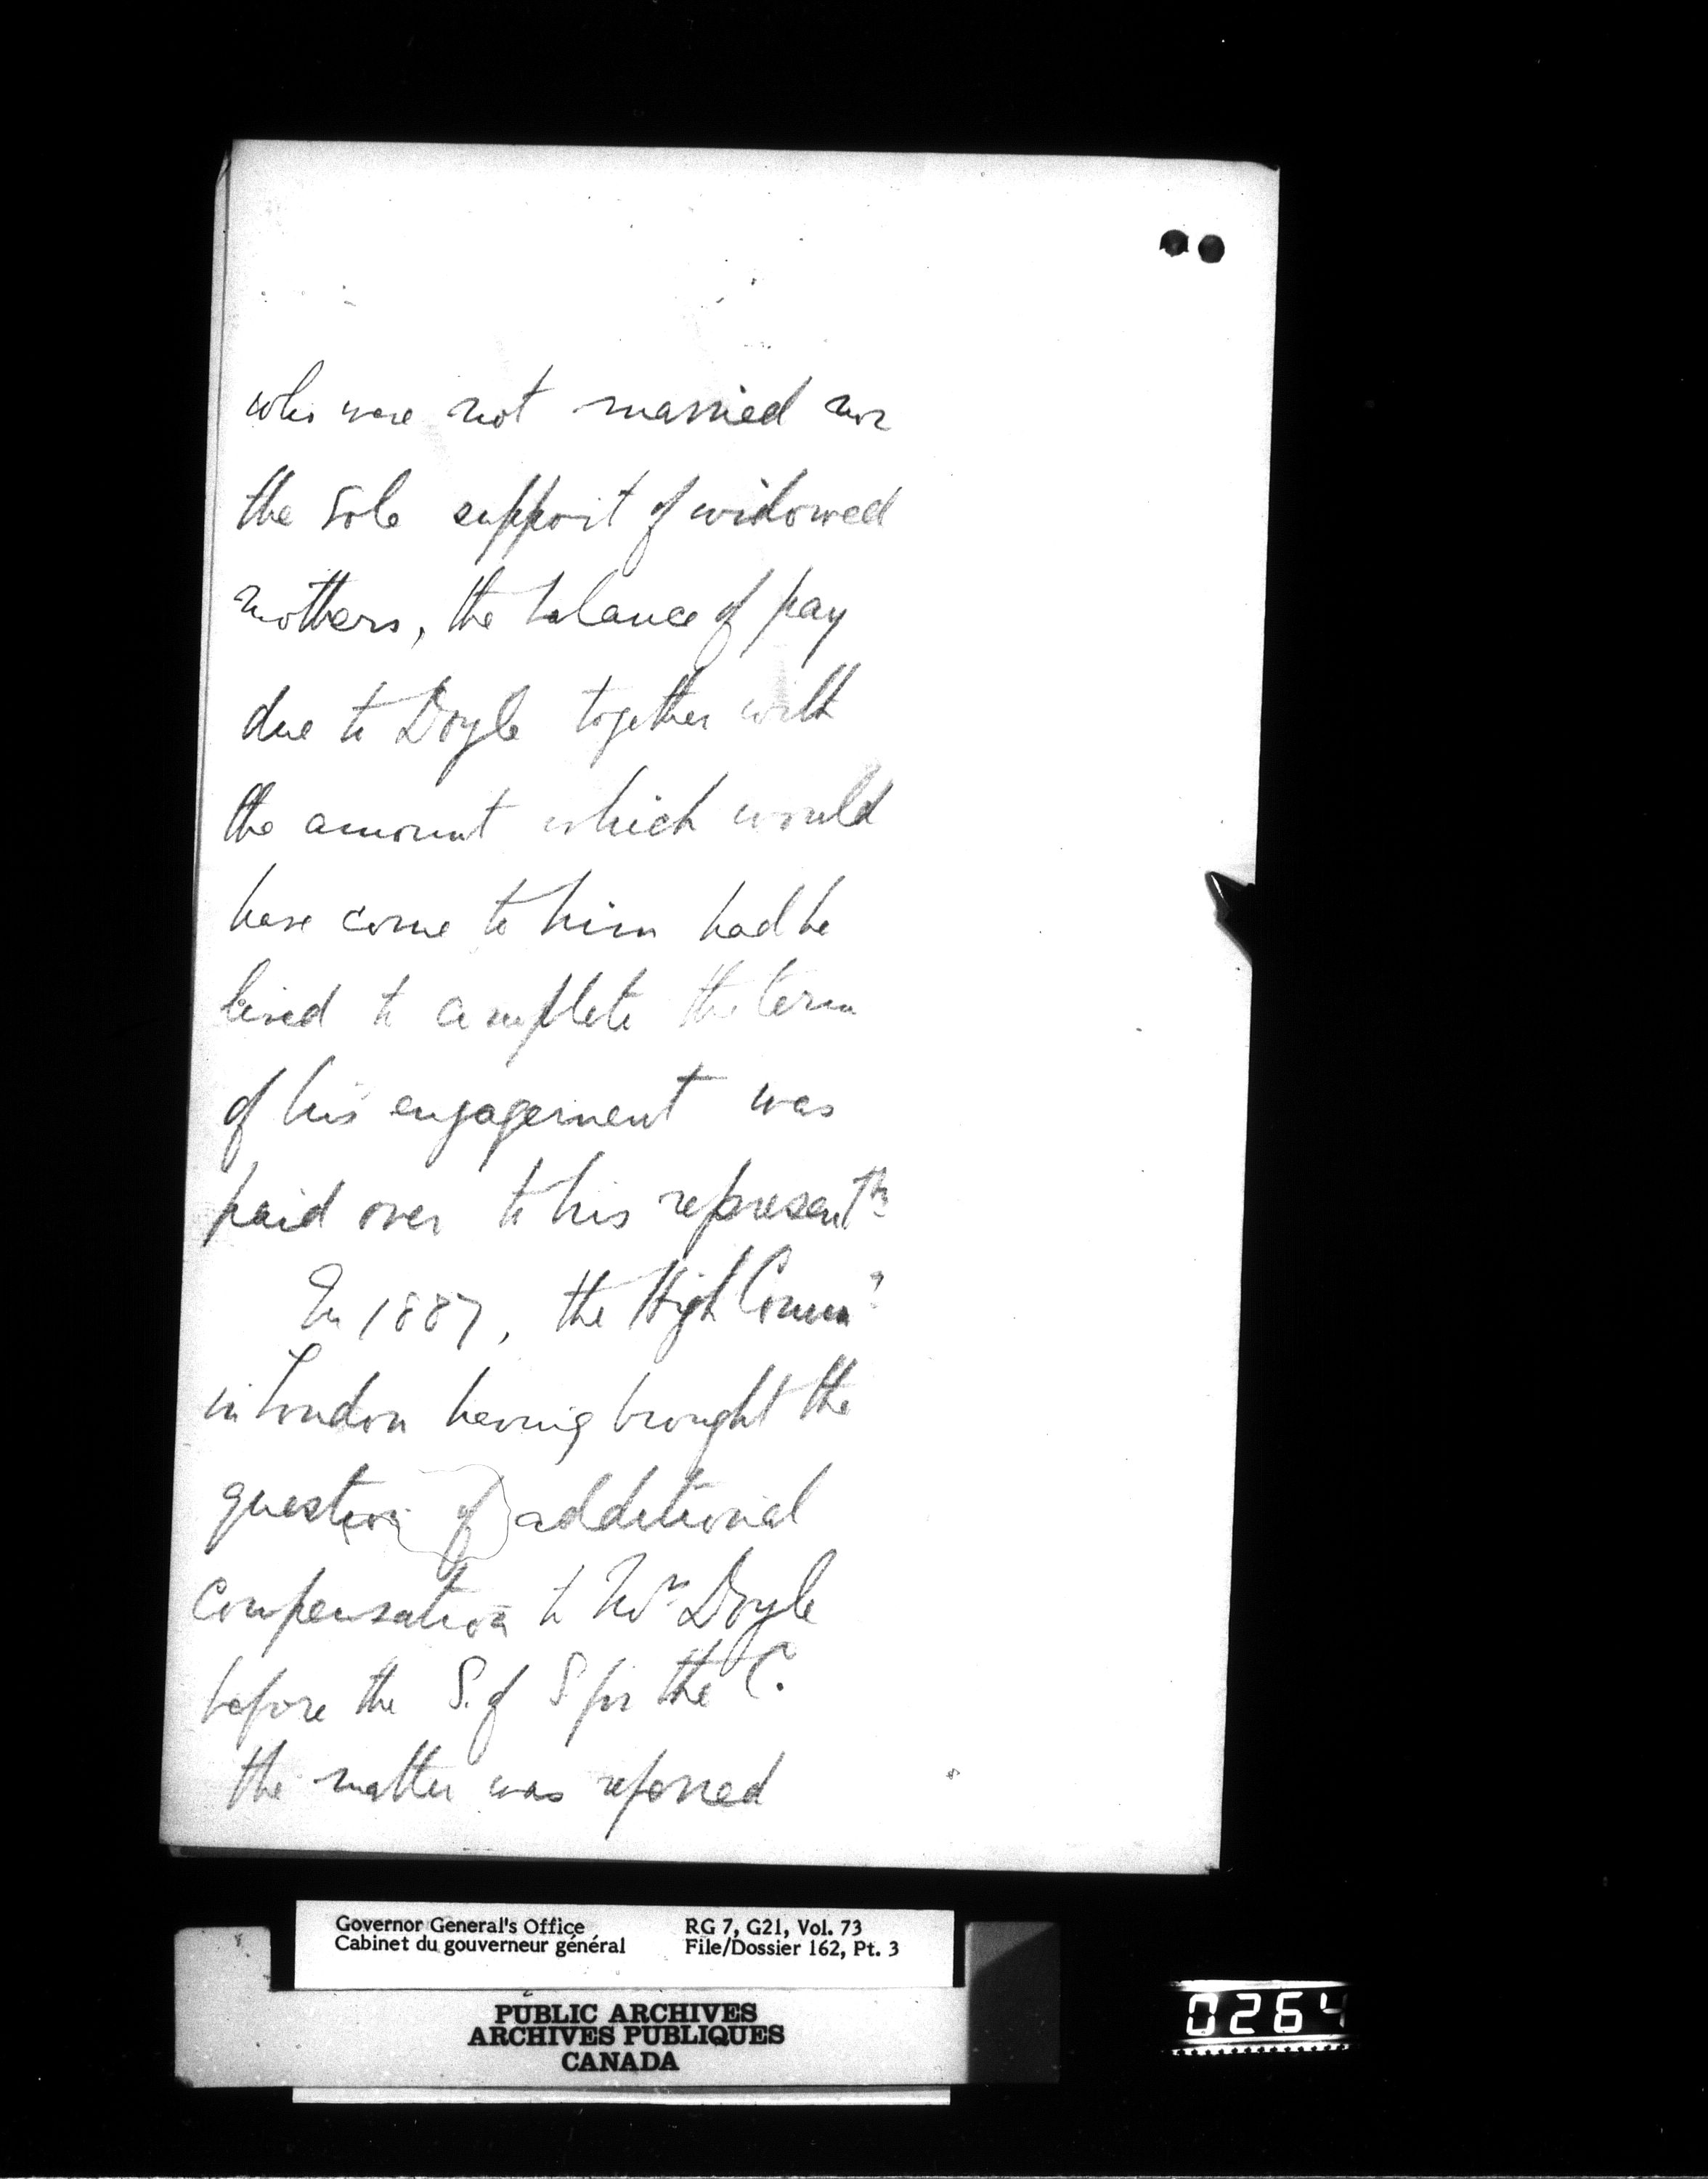 who were not married nor
the sole support of widowed
mothers, the balance of pay
due to Doyle together with
the amount which would
have come to him had he
lived to complete the term
of his engagement was
paid over to his represent
In 1887, the High Comm
in London having brought the
question of additional
compensation to Mr Doyle
before the S. of S for the C.
the matter was referred
Governor General's Office RG 7, G21, Vol. 73
Cabinet du gouverneur général File/Dossier 162, Pt. 3
PUBLIC ARCHIVES
ARCHIVES PUBLIQUES
CANADA
0264